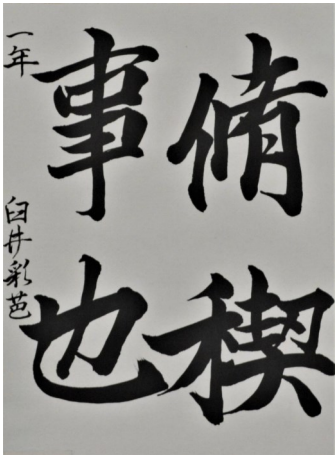 脩稧
事也
一年 臼井彩芭